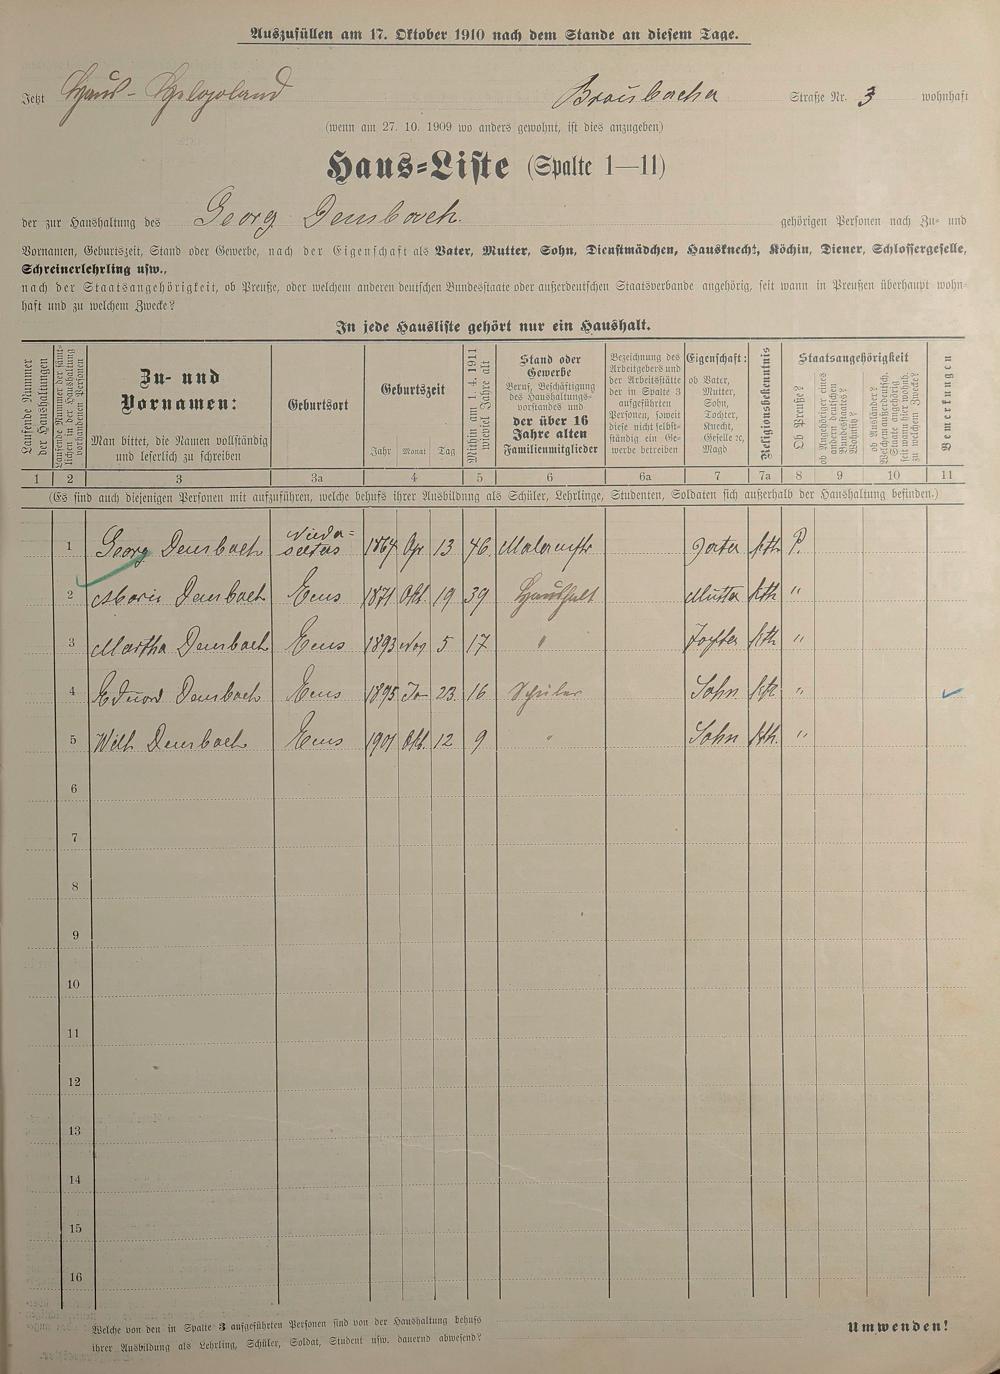 Auszufüllen am 17. Oktober 1910 nach dem Stande an diesem Tage.
Jetzt Haus- Helgoland Braubacher Straße Nr. 3 wohnhaft
(wenn am 27. 10. 1909 wo anders gewohnt, ist dies anzugeben)
Haus=Liste (Spalte 1—11)
der zur Haushaltung des Georg Dembach gehörigen Personen nach Zu- und
Vornamen, Geburtszeit, Stand oder Gewerbe, nach der Eigenschaft als Vater, Mutter, Sohn, Dienstmädchen, Hausknecht, Köchin, Diener, Schlossergeselle,
Schreinerlehrling usw.,
nach der Staatsangehörigkeit, ob Preuße, oder welchem anderen deutschen Bundesstaate oder außerdeutschen Staatsverbande angehörig, seit wann in Preußen überhaupt wohn-
haft und zu welchem Zwecke?
In jede Hausliste gehört nur ein Haushalt.
Laufende Nummer
der Haushaltungen
Laufende Nummer der sämt-
lichen in der Haushaltung
vorhandenen Personen
Zu- und
Vornamen:
Man bittet, die Namen vollständig
und leserlich zu schreiben
Geburtsort
Geburtszeit
Jahr Monat Tag
Mithin am 1. 4. 1911
wieviel Jahre alt
Stand oder
Gewerbe
Beruf, Beschäftigung
des Haushaltungs-
vorstandes und
der über 16
Jahre alten
Familienmitglieder
Bezeichnung des
Arbeitgebers und
der Arbeitsstätte
der in Spalte 3
aufgeführten
Personen, soweit
diese nicht selbst-
ständig ein Ge-
werbe betreiben
Eigenschaft:
ob Vater,
Mutter,
Sohn,
Tochter,
Knecht,
Geselle ꝛc,
Magd
Religionsbekenntnis
Staatsangehörigkeit
Ob Preuße?
ob Angehöriger eines
andern deutschen
Bundesstaates?
Wohnsitz?
ob Ausländer?
Welchem außerdeutsch.
Staate angehörig
seit wann hier wohnh.
zu welchem Zwecke?
Bemerkungen
1 2 3 3a 4 5 6 6a 7 7a 8 9 10 11
(Es sind auch diejenigen Personen mit aufzuführen, welche behufs ihrer Ausbildung als Schüler, Lehrlinge, Studenten, Soldaten sich außerhalb der Haushaltung befinden.)
1 Georg Dembach 1864 Apr 13 46 Malermstr Vater kth P.
2 Maria Dembach Ems 1871 Okt. 19 39 Haushalt Mutter kth "
3 Martha Dembach Ems 1893 Nov 5 17 " Tochter kth "
4 Eduard Dembach Ems 1895 Ja 23 16 Schüler Sohn kth "
5 Wilh Dembach Ems 1901 Okt. 12 9 " Sohn kth. "
6
7
8
9
10
11
12
13
14
15
16
Welche von den in Spalte 3 aufgeführten Personen sind von der Haushaltung behufs
ihrer Ausbildung als Lehrling, Schüler, Soldat, Student usw. dauernd abwesend?
Umwenden!